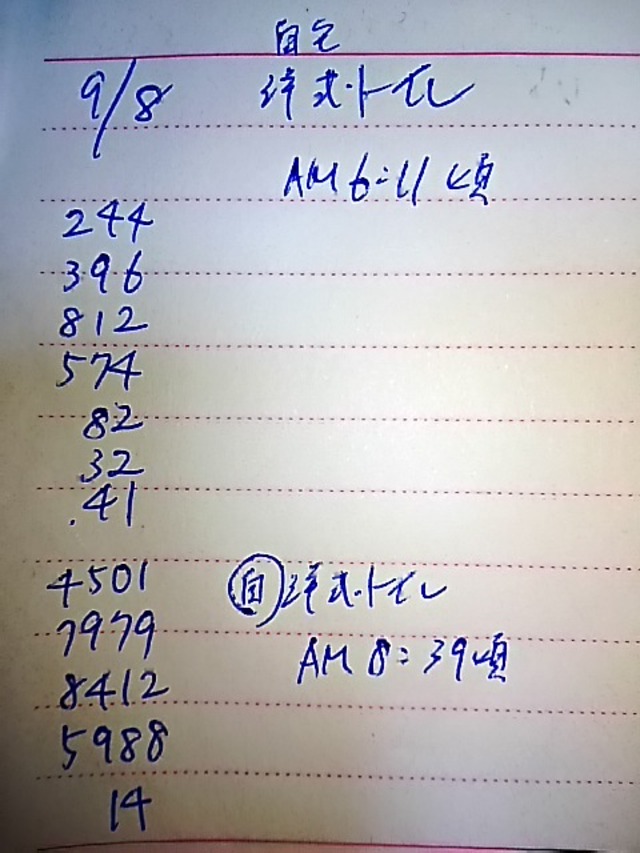 自宅
9/8 洋式トイレ
AM 6:11 頃
244
396
812
574
82
32
.41
4501 自 洋式トイレ
7979
AM 8:39頃
8412
5988
14